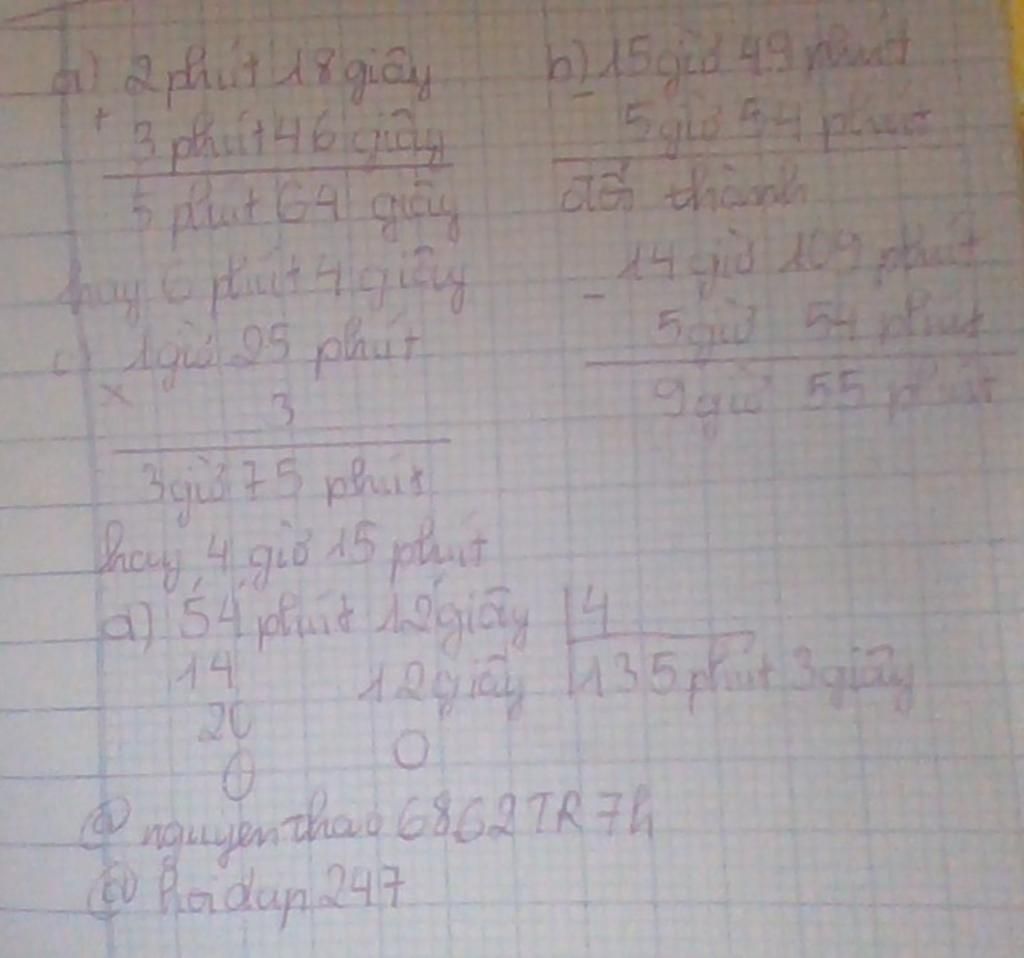 a) 2 phút 18 giây
+
3 phút 46 giây
5 phút 64 giây
hay 6 phút 4 giây
b) 15 giờ 49 phút
-
5 giờ 54 phút
đổi thành
14 giờ 109 phút
-
5 giờ 54 phút
9 giờ 55 phút
c) 1 giờ 25 phút
×
3
3 giờ 75 phút
hay 4 giờ 15 phút
d) 54 phút 12 giây | 4
14 12 giây | 135 phút 3 giây
20 0
0
@ nguyenthao6862TR7h
@ hoidap247